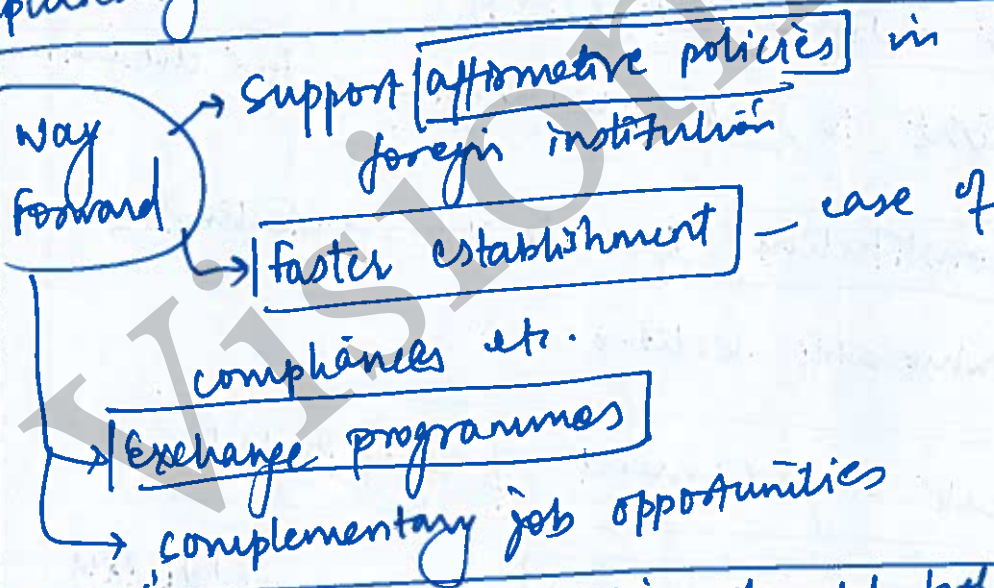 Way
Forward
→ Support affirmative policies in
foregin institution
→ Faster establishment — ease of
compliances etc.
→ Exchange programmes
→ complementary job opportunities
Vision